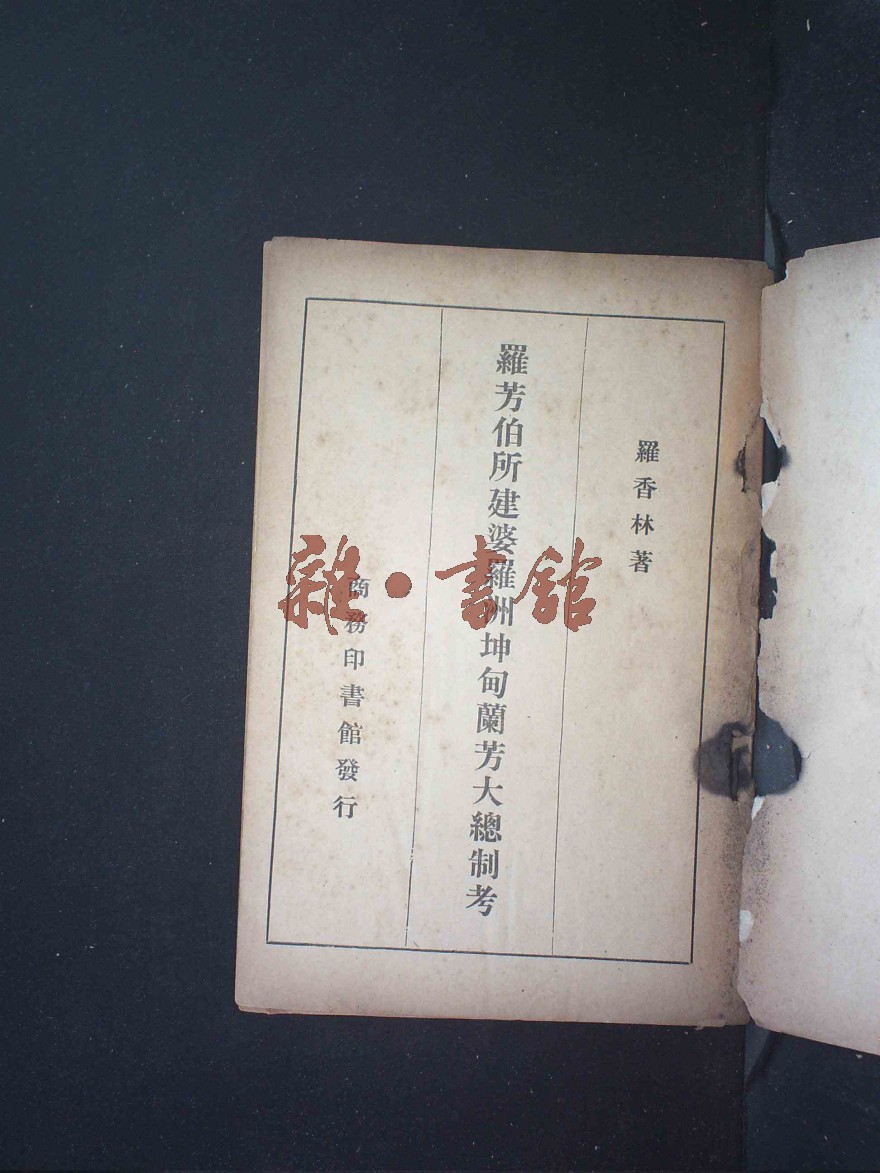 羅香林著
羅芳伯所建婆羅洲坤甸蘭芳大總制考
商務印書館發行
雜·書館